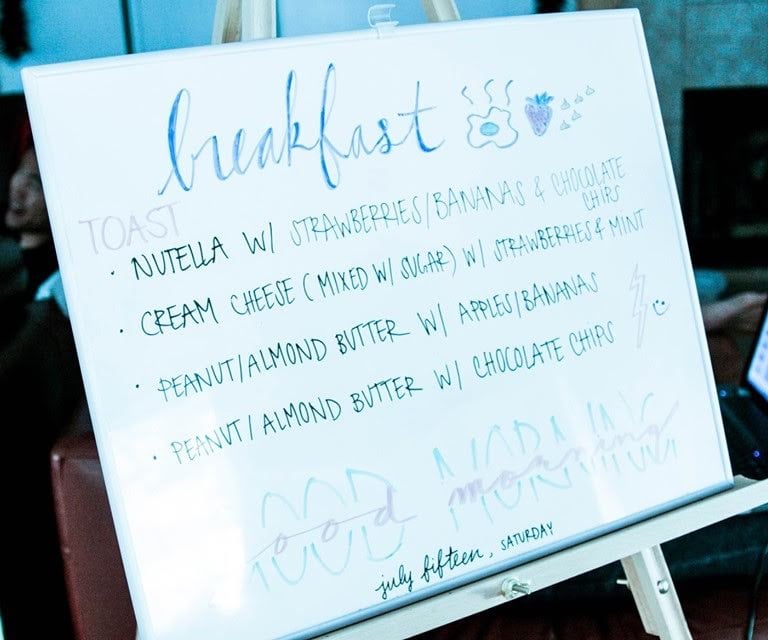 breakfast
TOAST
· NUTELLA W/ STRAWBERRIES/BANANAS & CHOCOLATE
CHIPS
· CREAM CHEESE (MIXED W/ SUGAR) W/ STRAWBERRIES & MINT
· PEANUT/ALMOND BUTTER W/ APPLES/BANANAS
· PEANUT/ALMOND BUTTER W/ CHOCOLATE CHIPS
GOOD MORNING
good morning
july fifteen, SATURDAY